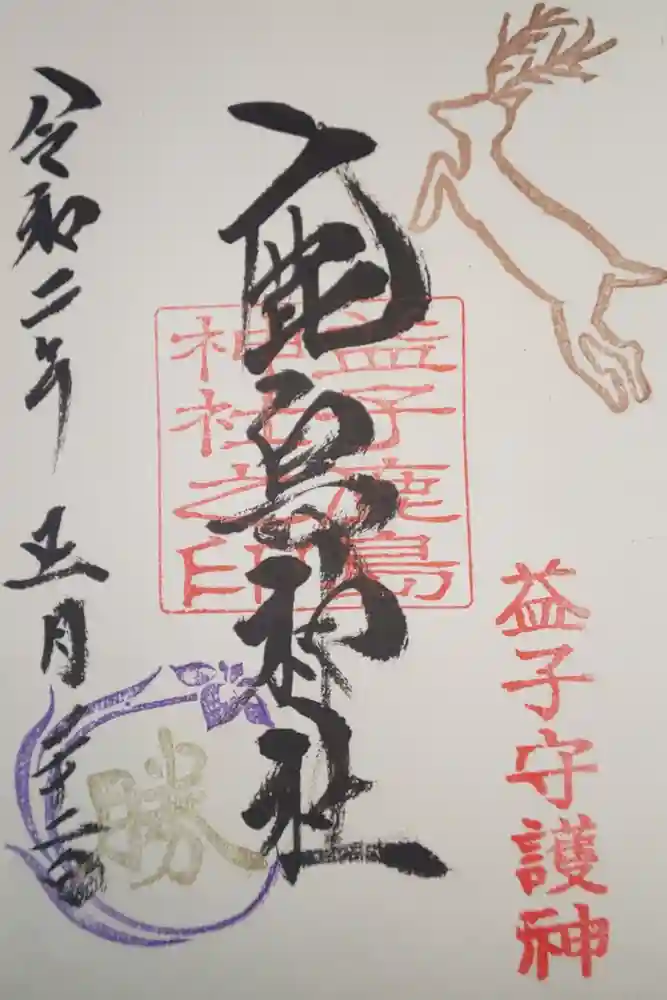 益子守護神
鹿島神社
益子鹿島
神社之印
令和二年 正月二十二日
勝